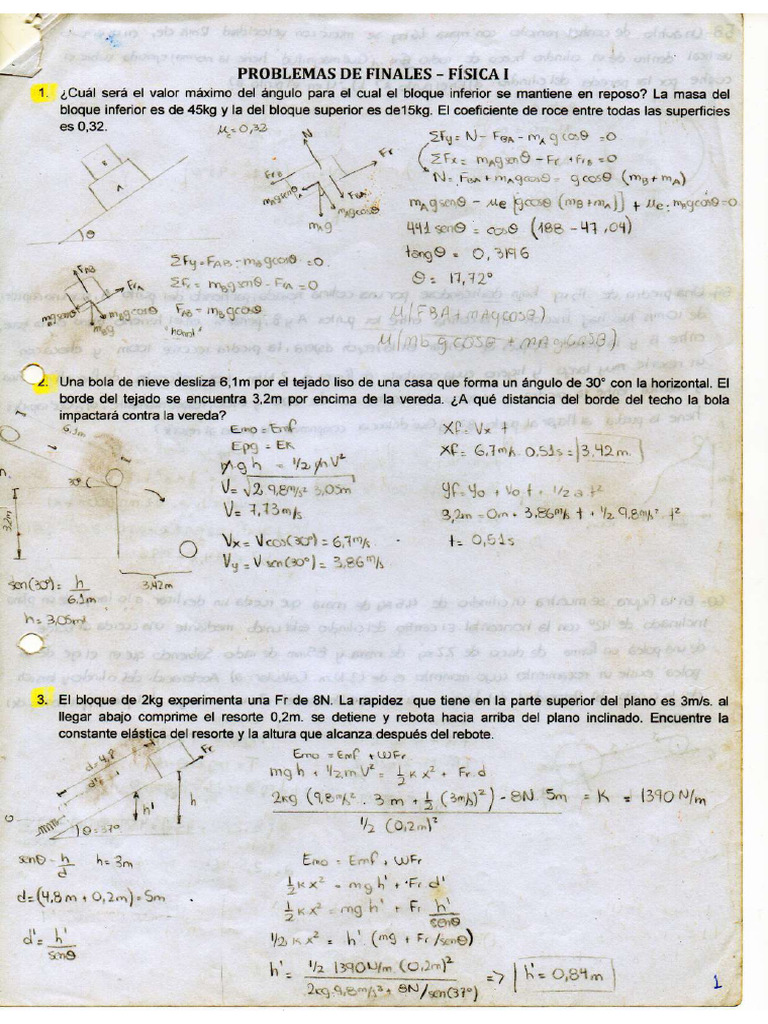 PROBLEMAS DE FINALES – FÍSICA I
1. ¿Cuál será el valor máximo del ángulo para el cual el bloque inferior se mantiene en reposo? La masa del
bloque inferior es de 45kg y la del bloque superior es de15kg. El coeficiente de roce entre todas las superficies
es 0,32.
μe = 0,32
B
A
θ
N
FrB
Fr
mAgsenθ
FBA
mAgcosθ
mAg
ΣFy = N - FBA - mAgcosθ = 0
ΣFx = mAgsenθ - Fr - FrB = 0
N = FBA + mAgcosθ = gcosθ (mB + mA)
mAgsenθ - μe [gcosθ (mB + mA)] + μe. mAgcosθ = 0
441 senθ = cosθ (188 - 47,04)
tangθ = 0,3196
θ = 17,72°
FAB
FrA
mBgcosθ
mBg
ΣFy = FAB - mBgcosθ = 0.
ΣFx = mBgsenθ - FrA = 0
FAB = mBgcosθ
μ(FBA + mAgcosθ)
μ(mb gcosθ + mAgcosθ)
2. Una bola de nieve desliza 6,1m por el tejado liso de una casa que forma un ángulo de 30° con la horizontal. El
borde del tejado se encuentra 3,2m por encima de la vereda. ¿A qué distancia del borde del techo la bola
impactará contra la vereda?
6,1m
30°
3,2m
3,42m
sen(30°) = h/6,1m
h = 3,05m
Emo = Emf
Epg = EK
mgh = 1/2 mV²
V = √2. 9,8m/s² 3,05m
V = 7,73 m/s
Vx = Vcos(30°) = 6,7m/s
Vy = Vsen(30°) = 3,86m/s
Xf = Vx t
Xf = 6,7m/s. 0,51s = 3,42m
Yf = Yo + Vo t + 1/2 a t²
3,2m = 0m + 3,86m/s t + 1/2 9,8m/s². t²
t = 0,51s
3. El bloque de 2kg experimenta una Fr de 8N. La rapidez que tiene en la parte superior del plano es 3m/s. al
llegar abajo comprime el resorte 0,2m. se detiene y rebota hacia arriba del plano inclinado. Encuentre la
constante elástica del resorte y la altura que alcanza después del rebote.
d=4,8
d'
Fr
h'
h
θ=37°
senθ = h/d h = 3m
d = (4,8m + 0,2m) = 5m
d' = h'/senθ
Emo = Emf + WFr
mgh + 1/2 m V² = 1/2 K x² + Fr.d
2kg (9,8m/s² . 3m + 1/2 (3m/s)²) - 8N. 5m = K = 1390 N/m
1/2 (0,2m)²
Emo = Emf + WFr
1/2 K x² = mgh' + Fr d'
1/2 K x² = mgh' + Fr h'/senθ
1/2 K x² = h' (mg + Fr/senθ)
h' = 1/2 1390N/m (0,2m)² => h' = 0,84m
2kg. 9,8m/s² + 8N/sen(37°)
1